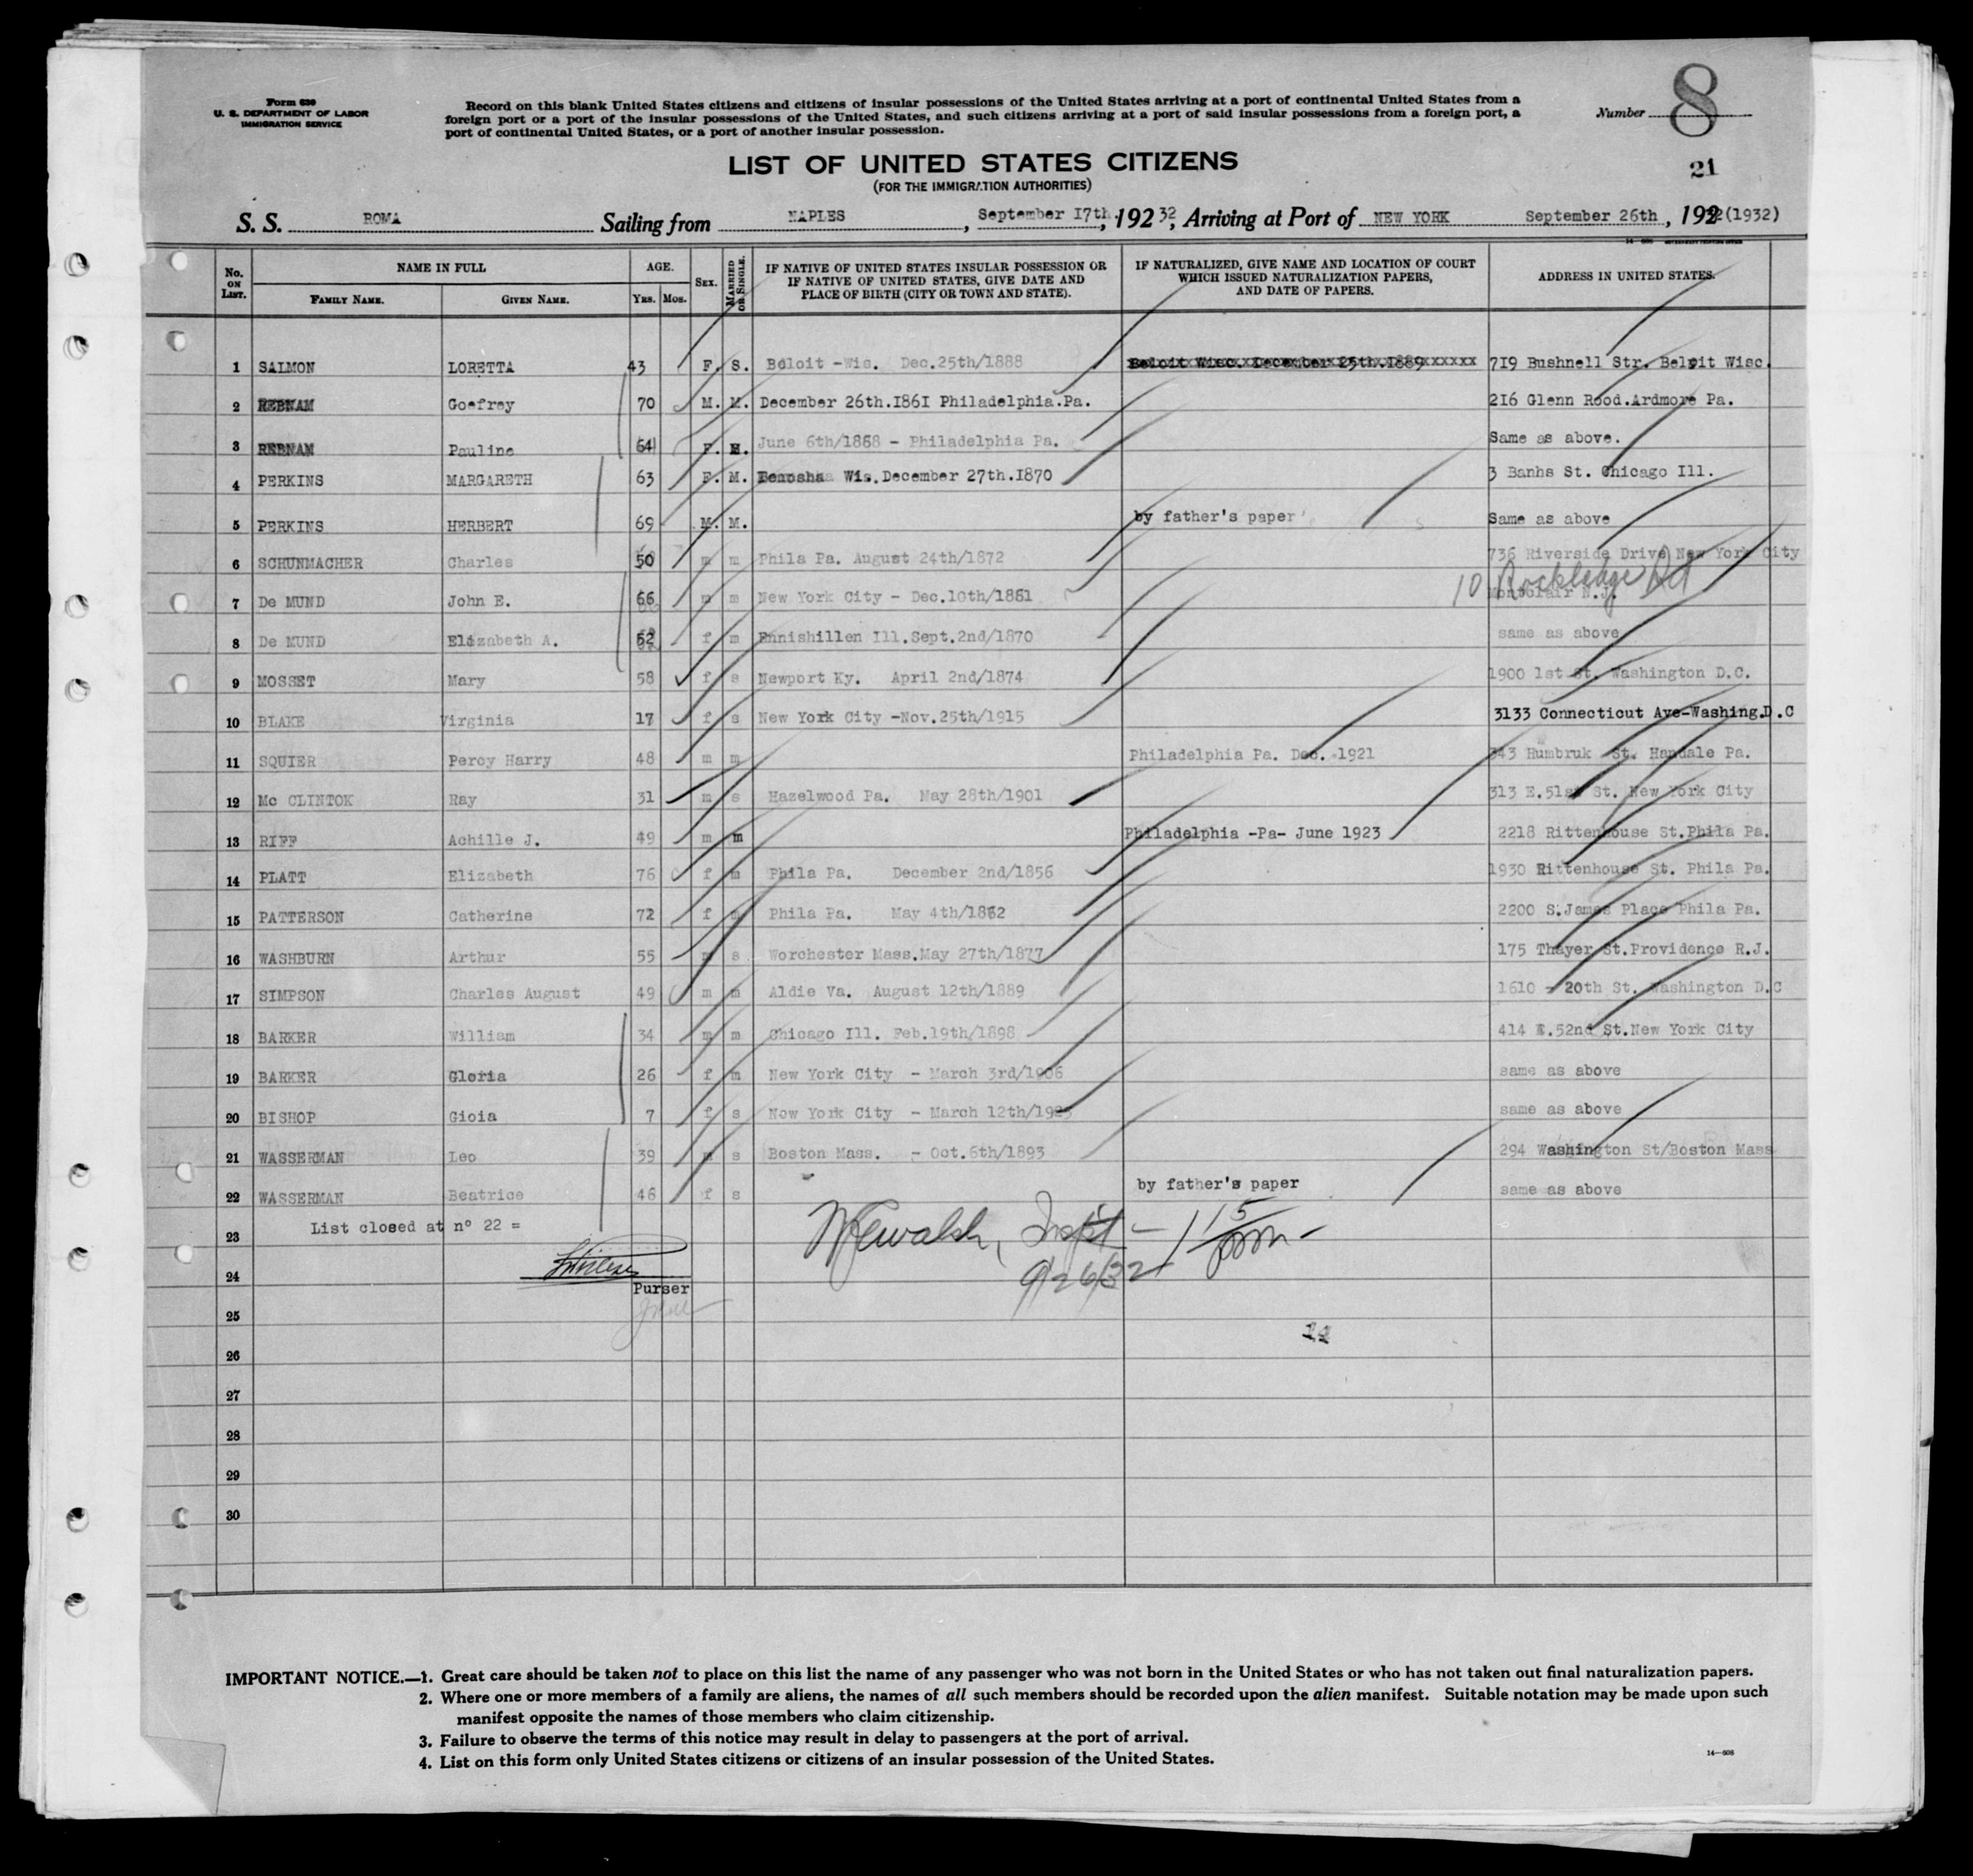 Form 630
U. S. DEPARTMENT OF LABOR
IMMIGRATION SERVICE
Record on this blank United States citizens and citizens of insular possessions of the United States arriving at a port of continental United States from a
foreign port or a port of the insular possessions of the United States, and such citizens arriving at a port of said insular possessions from a foreign port, a
port of continental United States, or a port of another insular possession.
Number 8
21
LIST OF UNITED STATES CITIZENS
(FOR THE IMMIGRATION AUTHORITIES)
S. S. ROMA Sailing from NAPLES, September 17th, 192 32, Arriving at Port of NEW YORK September 26th, 192 (1932)
No. ON LIST. NAME IN FULL AGE. SEX. MARRIED OR SINGLE. IF NATIVE OF UNITED STATES INSULAR POSSESSION OR IF NATIVE OF UNITED STATES, GIVE DATE AND PLACE OF BIRTH (CITY OR TOWN AND STATE). IF NATURALIZED, GIVE NAME AND LOCATION OF COURT WHICH ISSUED NATURALIZATION PAPERS, AND DATE OF PAPERS. ADDRESS IN UNITED STATES.
FAMILY NAME. GIVEN NAME. YRS. MOS.
1 SALMON LORETTA 43 F. S. Beloit -Wis. Dec.25th/1888 Beloit Wisc. December 25th.1889 719 Bushnell Str. Beloit Wisc.
2 REBNAM Goefrey 70 M. M. December 26th.1861 Philadelphia.Pa. 216 Glenn Rood.Ardmore Pa.
3 REBNAM Pauline 64 F. M. June 6th/1868 - Philadelphia Pa. Same as above.
4 PERKINS MARGARETH 63 F. M. Kenosha Wis.December 27th.1870 3 Banhs St. Chicago Ill.
5 PERKINS HERBERT 69 M. M. by father's paper Same as above
6 SCHUNMACHER Charles 50 m m Phila Pa. August 24th/1872 736 Riverside Drive New York City
7 De MUND John E. 66 m m New York City - Dec.10th/1861 10 Rockledge Rd Montclair N.J.
8 De MUND Elizabeth A. 62 f m Ennishillen Ill.Sept.2nd/1870 same as above
9 MOSSET Mary 58 f s Newport Ky. April 2nd/1874 1900 1st St. Washington D.C.
10 BLAKE Virginia 17 f s New York City -Nov.25th/1915 3133 Connecticut Ave-Washing.D.C
11 SQUIER Percy Harry 48 m m Philadelphia Pa. Dec. 1921 343 Humbruk St. Handale Pa.
12 Mc CLINTOK Ray 31 m s Hazelwood Pa. May 28th/1901 313 E.51st St. New York City
13 RIFF Achille J. 49 m m Philadelphia -Pa- June 1923 2218 Rittenhouse St.Phila Pa.
14 PLATT Elizabeth 76 f m Phila Pa. December 2nd/1856 1930 Rittenhouse St. Phila Pa.
15 PATTERSON Catherine 72 f m Phila Pa. May 4th/1862 2200 S.James Place Phila Pa.
16 WASHBURN Arthur 55 m s Worchester Mass.May 27th/1877 175 Thayer St.Providence R.J.
17 SIMPSON Charles August 49 m m Aldie Va. August 12th/1889 1610 - 20th St. Washington D.C
18 BARKER William 34 m m Chicago Ill. Feb.19th/1898 414 E.52nd St.New York City
19 BARKER Gloria 26 f m New York City - March 3rd/1906 same as above
20 BISHOP Gioia 7 f s New York City - March 12th/1925 same as above
21 WASSERMAN Leo 39 m s Boston Mass. - Oct.6th/1893 294 Washington St/Boston Mass
22 WASSERMAN Beatrice 46 f s by father's paper same as above
23 List closed at n° 22 =
24 Purser
9/26/32
25
26
27
28
29
30
IMPORTANT NOTICE.—1. Great care should be taken not to place on this list the name of any passenger who was not born in the United States or who has not taken out final naturalization papers.
2. Where one or more members of a family are aliens, the names of all such members should be recorded upon the alien manifest. Suitable notation may be made upon such
manifest opposite the names of those members who claim citizenship.
3. Failure to observe the terms of this notice may result in delay to passengers at the port of arrival.
4. List on this form only United States citizens or citizens of an insular possession of the United States.